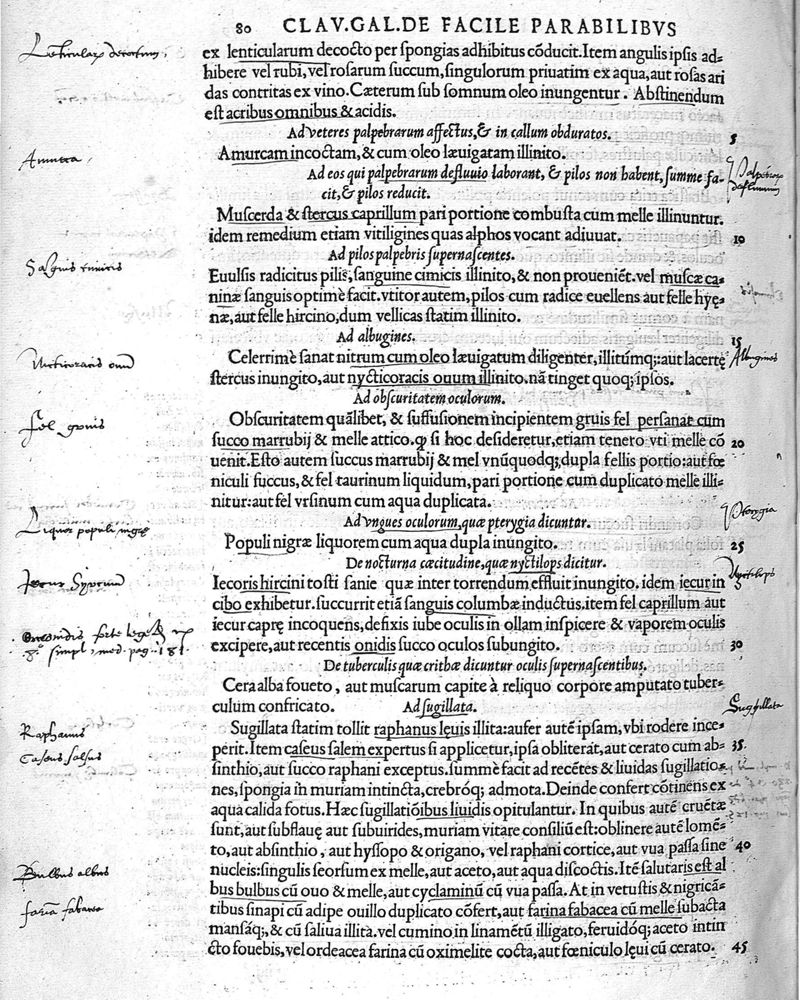 80 CLAV.GAL.DE FACILE PARABILIBVS
ex lenticularum decocto per spongias adhibitus cõducit.Item angulis ipsis ad-
hibere vel rubi, vel rosarum succum, singulorum priuatim ex aqua, aut rosas ari
das contritas ex vino. Cæterum sub somnum oleo inungentur. Abstinendum
est acribus omnibus & acidis.
Ad veteres palpebrarum affectus,& in callum obduratos. 5
Amurca
Amurcam incoctam,& cum oleo læuigatam illinito.
Ad eos qui palpebrarum defluuio laborant, & pilos non habent, summe fa-
cit,& pilos reducit.
Muscerda & stercus caprillum pari portione combusta cum melle illinuntur.
idem remedium etiam vitiligines quas alphos vocant adiuuat. 10
Ad pilos palpebris supernascentes.
Sãguis cimicis
Euulsis radicitus pilis, sanguine cimicis illinito,& non proueniẽt.vel muscæ ca-
ninæ sanguis optimè facit.vtitor autem,pilos cum radice euellens aut felle hyę-
næ,aut felle hircino,dum vellicas statim illinito.
Ad albugines. 15
Albugines
Celerrimè sanat nitrum cum oleo læuigatum diligenter, illitúmq;:aut lacertę
Nicticoracis ouũ
stercus inungito,aut nycticoracis ouum illinito.nã tinget quoq; ipsos.
Ad obscuritatem oculorum.
Fel gruis
Obscuritatem quãlibet, & suffusionem incipientem gruis fel persanat cum
succo marrubij & melle attico.ꝙ si hoc desideretur,etiam tenero vti melle cõ 20
uenit.Esto autem succus marrubij & mel vnũquodq;,dupla fellis portio:aut fœ
niculi succus,& fel taurinum liquidum,pari portione cum duplicato melle illi-
nitur:aut fel vrsinum cum aqua duplicata.
Pterygia
Ad vngues oculorum,quæ pterygia dicuntur.
Liquor populi nigrę
Populi nigræ liquorem cum aqua dupla inungito. 25
De nocturna cæcitudine,quæ nyctilops dicitur.
Iecoris hircini tosti sanie quæ inter torrendum effluit inungito. idem iecur in
cibo exhibetur.succurrit etiã sanguis columbæ inductus.item fel caprillum aut
iecur caprę incoquens,defixis iube oculis in ollam inspicere & vaporem oculis
excipere,aut recentis onidis succo oculos subungito. 30
De tuberculis quæ crithæ dicuntur oculis supernascentibus.
Cera alba foueto, aut muscarum capite à reliquo corpore amputato tuber-
culum confricato. Ad sugillata.
Sugillata
Raphanus
Sugillata statim tollit raphanus lęuis illita:aufer autẽ ipsam,vbi rodere ince-
Caseus salsus
perit.Item caseus salem expertus si applicetur,ipsa obliterat,aut cerato cum ab- 35
sinthio,aut succo raphani exceptus.summè facit ad recẽtes & liuidas sugillatio-
nes,spongia in muriam intincta,crebróq; admota.Deinde confert cõtinens ex
aqua calida fotus.Hæc sugillatiõibus liuidis opitulantur. In quibus autẽ cruẽtæ
sunt,aut subflauę aut subuirides,muriam vitare consiliũ est:oblinere autẽ lomẽ-
to,aut absinthio, aut hyssopo & origano, vel raphani cortice,aut vua passa sine 40
nucleis:singulis seorsum ex melle,aut aceto,aut aqua discoctis.Itẽ salutaris est al
Bulbus albus
bus bulbus cũ ouo & melle,aut cyclaminũ cũ vua passa. At in vetustis & nigricã-
tibus sinapi cũ adipe ouillo duplicato cõfert,aut farina fabacea cũ melle subacta
farina fabacea
mansáq;,& cũ saliua illita.vel cumino in linamẽtũ illigato,feruidóq; aceto intin
cto fouebis,vel ordeacea farina cũ oximelite cocta,aut fœniculo lęui cũ cerato. 45